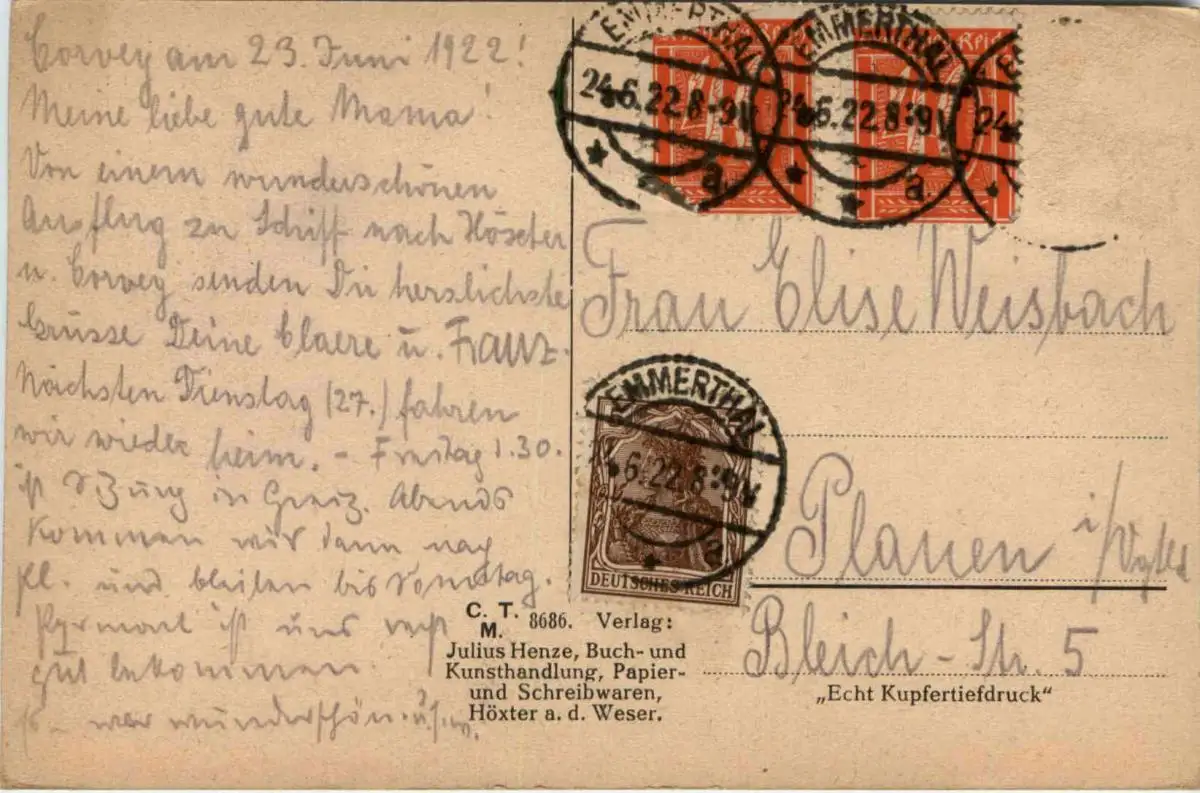 Corvey am 23. Juni 1922!
Meine liebe gute Mama!
Von einem wunderschönen
Ausflug zu Schiff nach Höxter
u. Corvey senden Dir herzlichste
Grüsse Deine Claere u. Franz.
Nächsten Dienstag (27.) fahren
wir wieder heim. - Freitag 1.30.
ist Sitzung in Greiz. Abends
kommen wir dann nach
Pl. und bleiben bis Sonntag.
Pyrmont ist uns recht
gut bekommen.
war wunderschön. u.s.w.
EMMERTHAL
24.6.22.8-9V
a.
EMMERTHAL
24.6.22.8-9V
a.
24
Frau Elise Weisbach
EMMERTHAL
6.22.8-9V
a
DEUTSCHES REICH
Plauen i/Vgtld
Bleich-Str. 5
C. T. M. 8686. Verlag:
Julius Henze, Buch- und
Kunsthandlung, Papier-
und Schreibwaren,
Höxter a. d. Weser.
„Echt Kupfertiefdruck“